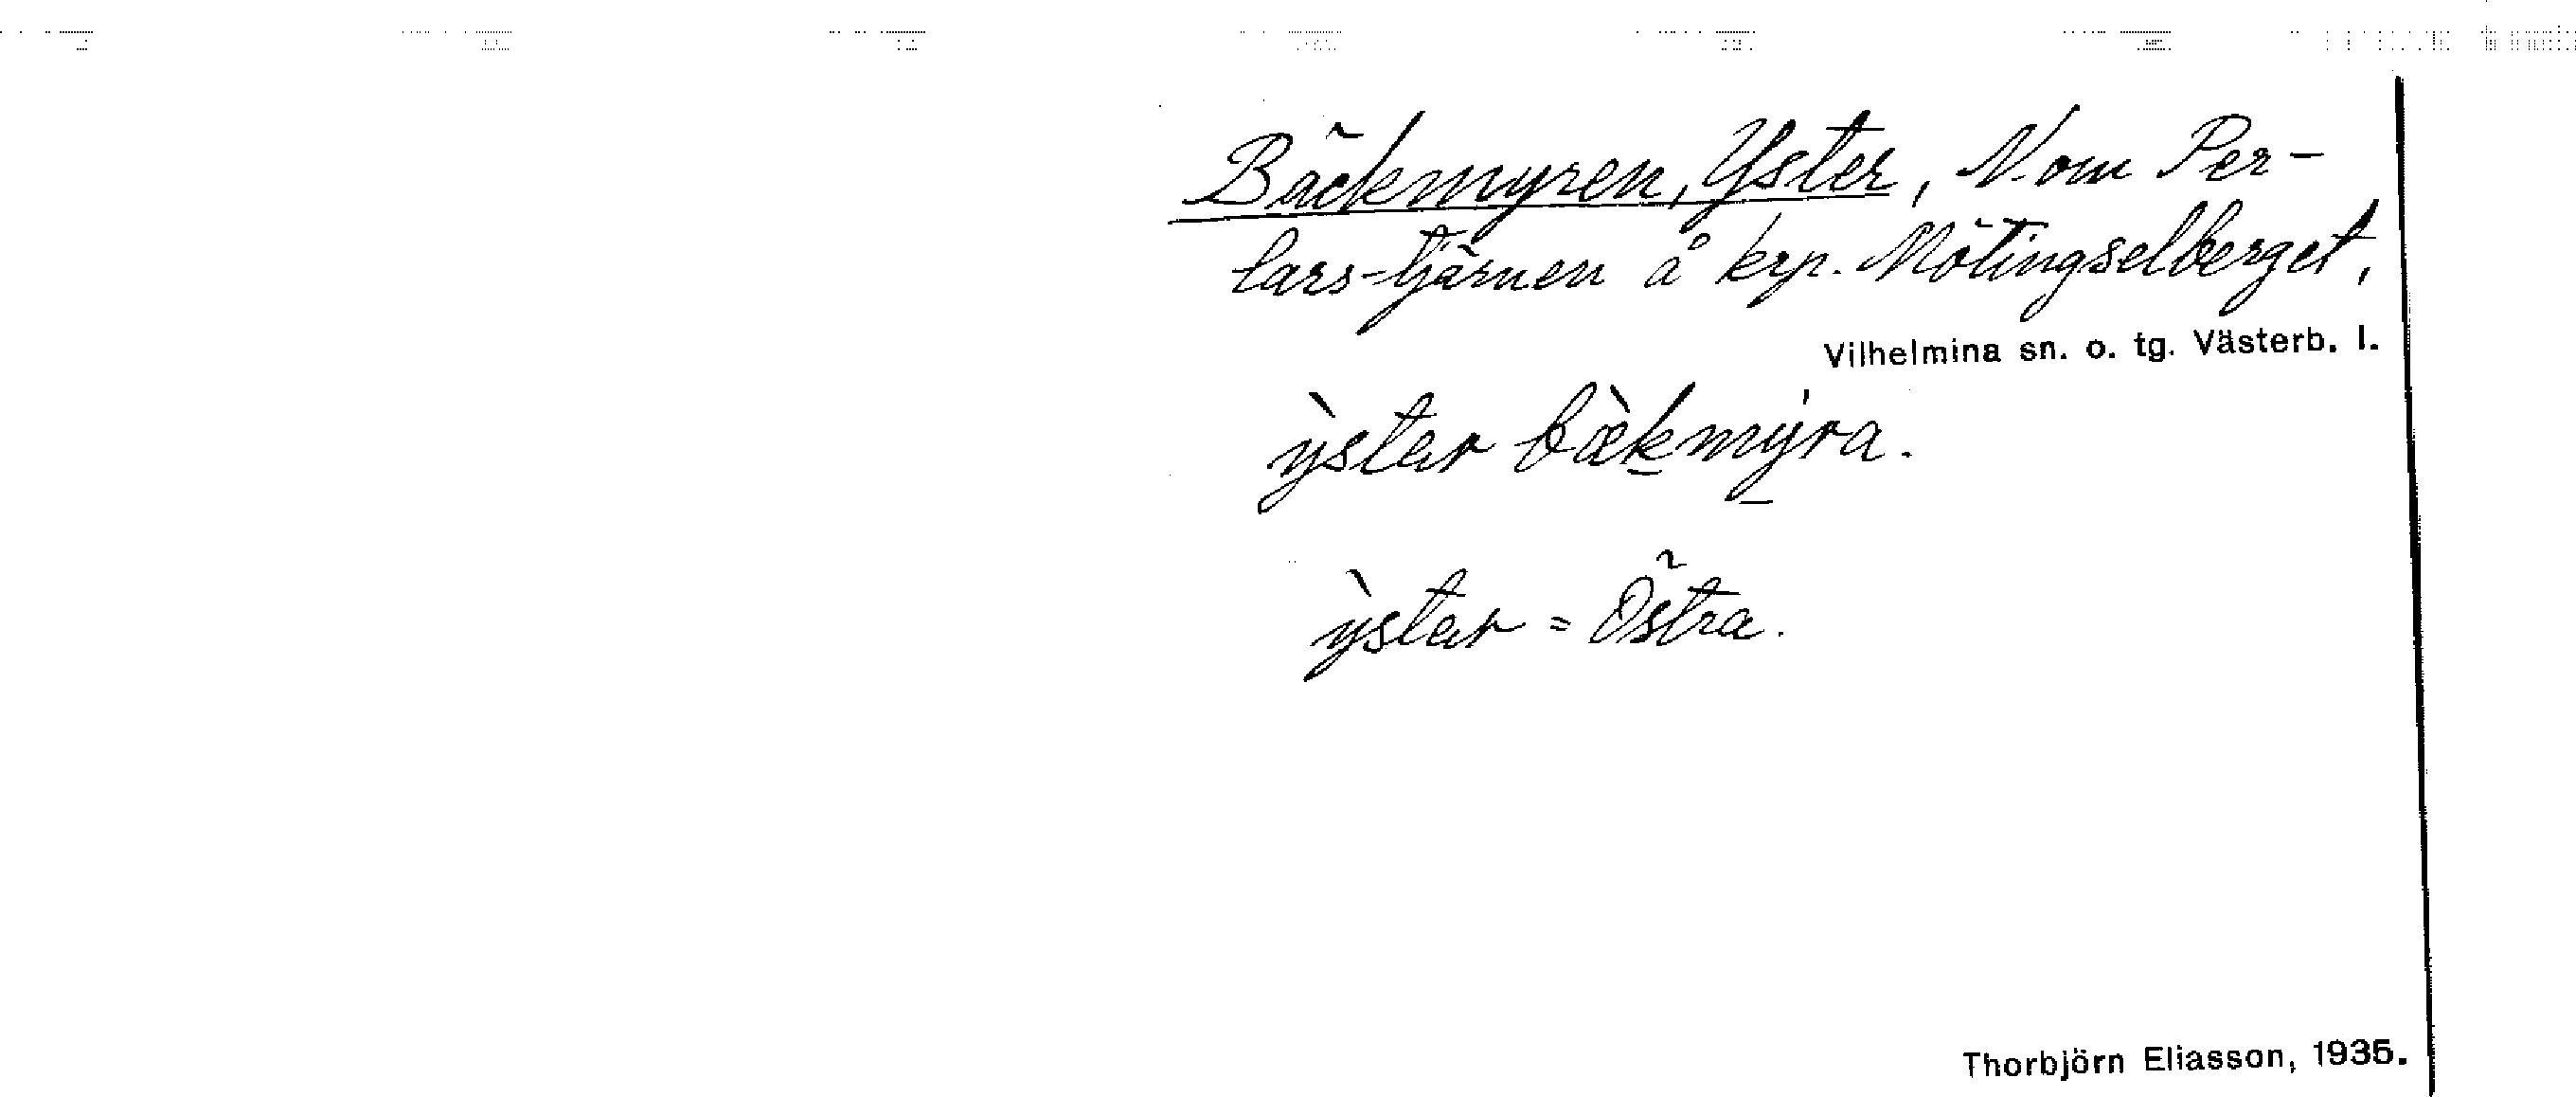 Bäckmyren, Yster, N. om Per-
Lars-tjärnen å krp. Mötingselberget,
Vilhelmina sn. o. tg. Västerb. l.
ỳstar bæ̀kmýra.
ỳstar = Östra.
Thorbjörn Eliasson, 1935.